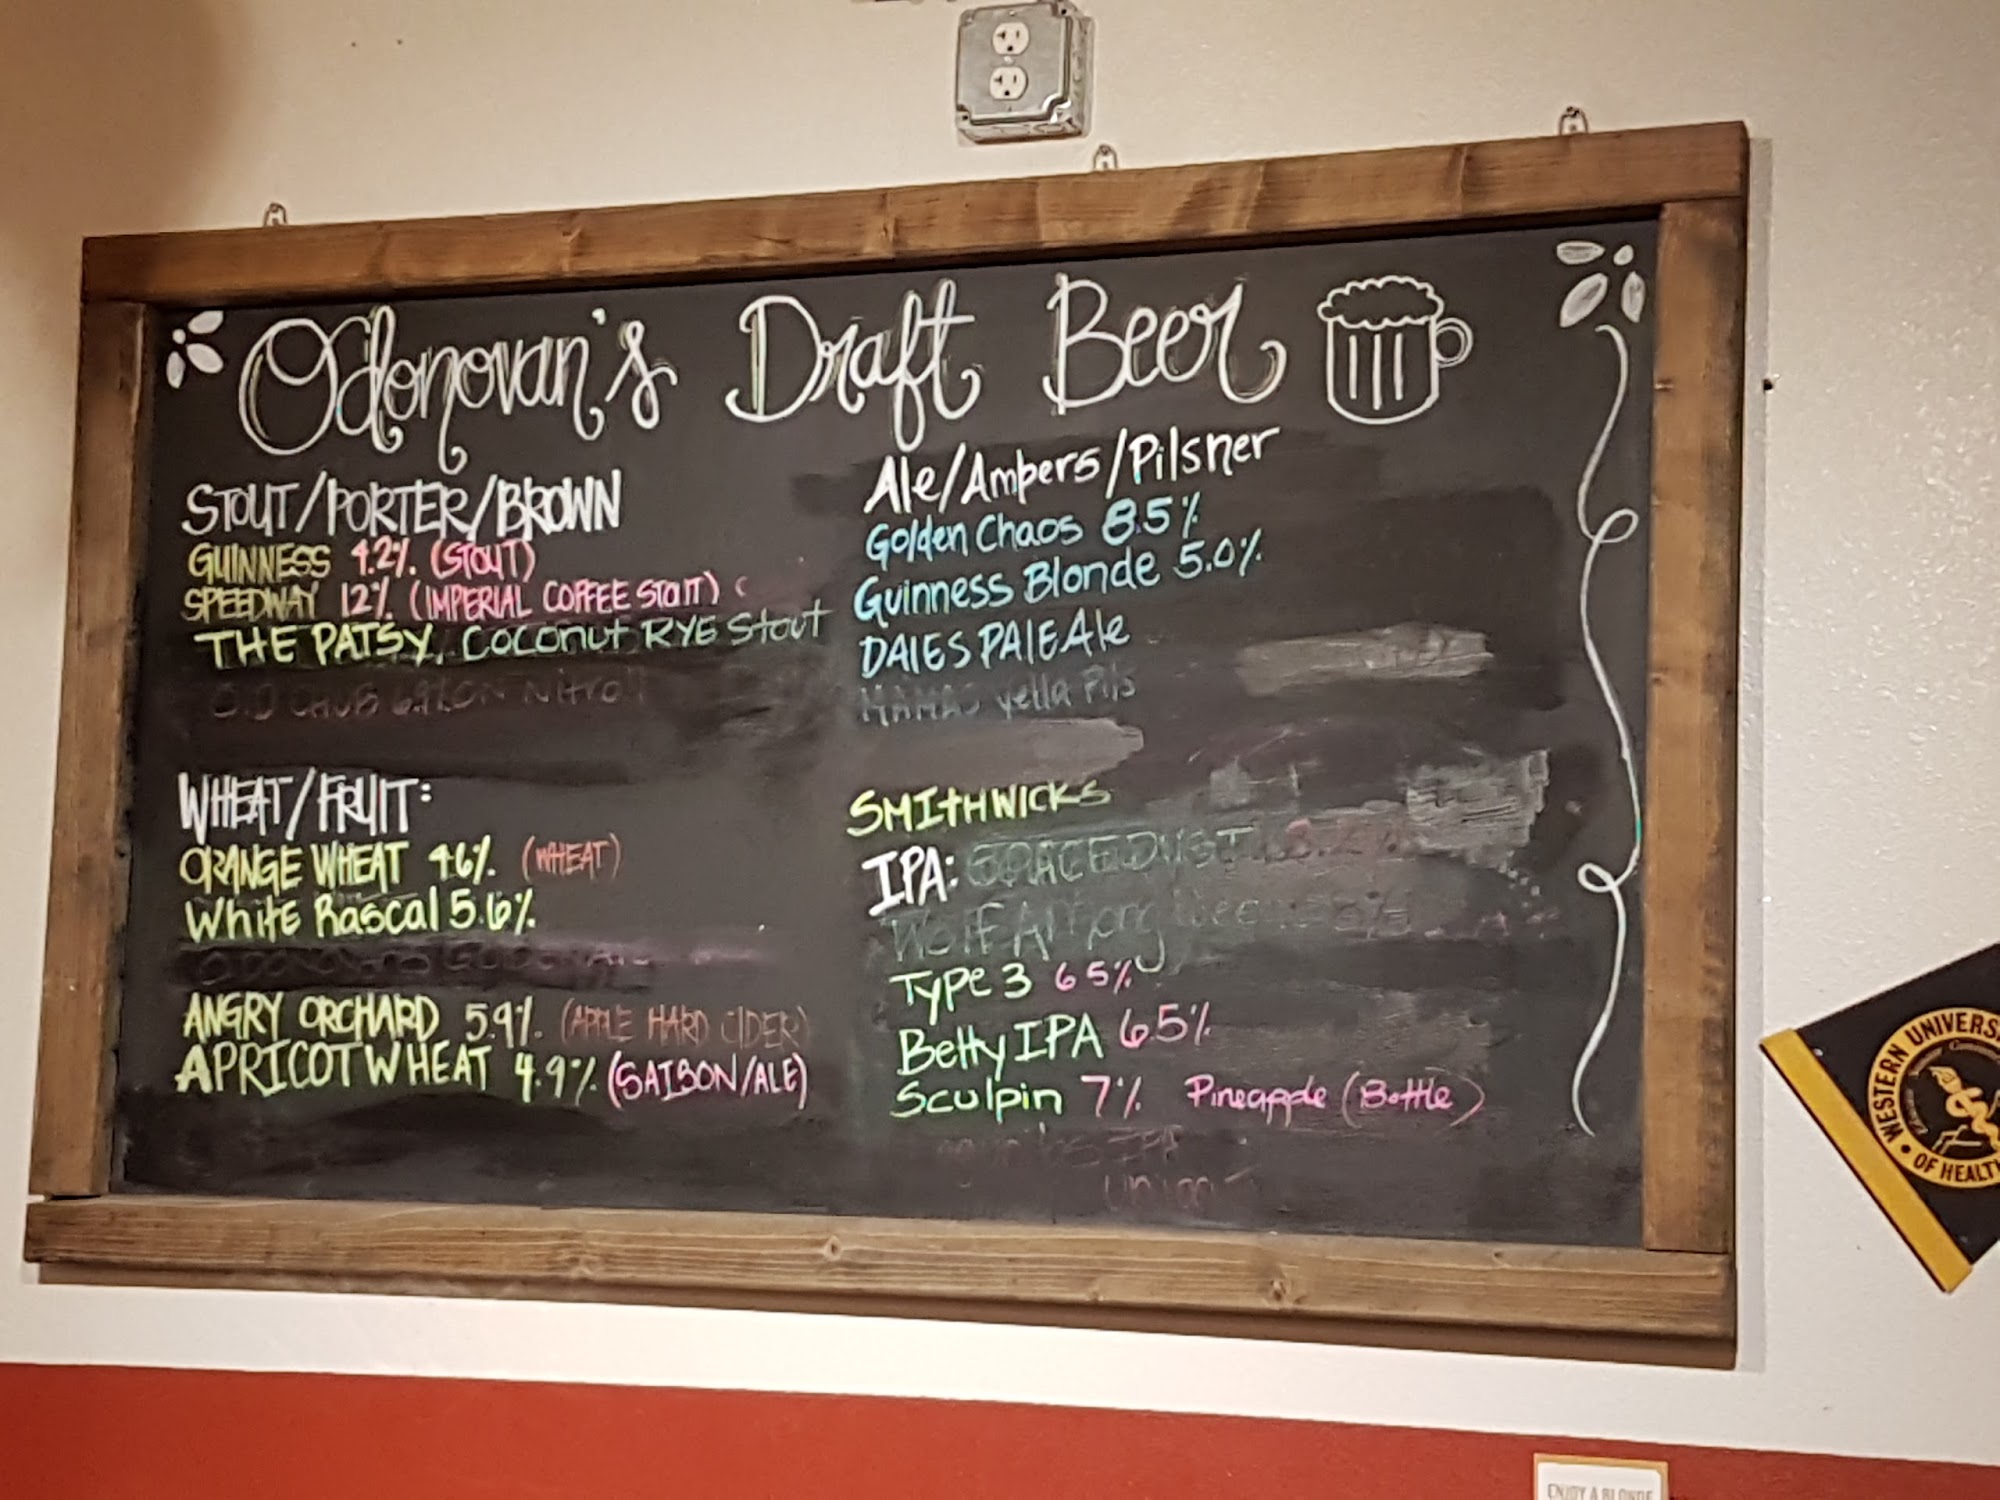 Odonovan's Draft Beer
STOUT/PORTER/BROWN
GUINNESS 4.2% (STOUT)
SPEEDWAY 12% (IMPERIAL COFFEE STOUT) (
THE PATSY, COCONUT RYE STOUT
CHUB 6.9% ON NITRO
WHEAT/FRUIT:
ORANGE WHEAT 4.6% (WHEAT)
White Rascal 5.6%
ANGRY ORCHARD 5.9% (APPLE HARD CIDER)
APRICOT WHEAT 4.9% (SAISON/ALE)
Ale/Ambers/Pilsner
Golden Chaos 8.5%
Guinness Blonde 5.0%
DALES PALE Ale
MAMAS yella Pils
SMITHWICKS
IPA: SPACE DUST
Wolf Among
Type 3 6.5%
Betty IPA 6.5%
Sculpin 7% Pineapple (Bottle)
IPA
WESTERN UNIVERS
OF HEALT
ENJOY A BLONDE